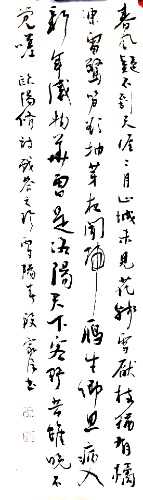 春风疑不到天涯二月山城未见花残雪厭枝猶有橘
凍雷驚笋欲抽芽夜聞歸雁生鄉思病入
新年感物華曾是洛陽天下客野芳雖晚不
嗟 歐陽脩詩戲答元珍